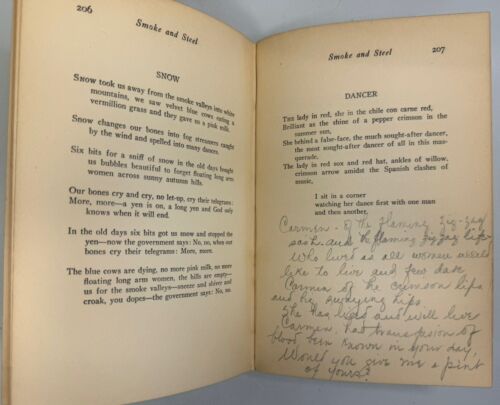 206
Smoke and Steel
SNOW
SNOW took us away from the smoke valleys into white
mountains, we saw velvet blue cows eating a
vermillion grass and they gave us a pink milk.
Snow changes our bones into fog streamers caught
by the wind and spelled into many dances.
Six bits for a sniff of snow in the old days bought
us bubbles beautiful to forget floating long arm
women across sunny autumn hills.
Our bones cry and cry, no let-up, cry their telegrams:
More, more—a yen is on, a long yen and God only
knows when it will end.
In the old days six bits got us snow and stopped the
yen—now the government says: No, no, when our
bones cry their telegrams: More, more.
The blue cows are dying, no more pink milk, no more
floating long arm women, the hills are empty—
us for the smoke valleys—sneeze and shiver and
croak, you dopes—the government says: No, no.
Smoke and Steel
207
DANCER
THE lady in red, she in the chile con carne red,
Brilliant as the shine of a pepper crimson in the
summer sun,
She behind a false-face, the much sought-after dancer,
the most sought-after dancer of all in this mas-
querade,
The lady in red sox and red hat, ankles of willow,
crimson arrow amidst the Spanish clashes of
music,
I sit in a corner
watching her dance first with one man
and then another.
Carmen - of the flaming zig-zag
sash - and the flaming zig zag life
Who lived as all women would
like to live and few dare
Carmen of the crimson lips
and the swaying hips
She has lived and will live
Carmen, had transfusion of
blood been known in your day,
Would you give me a pint
of yours?